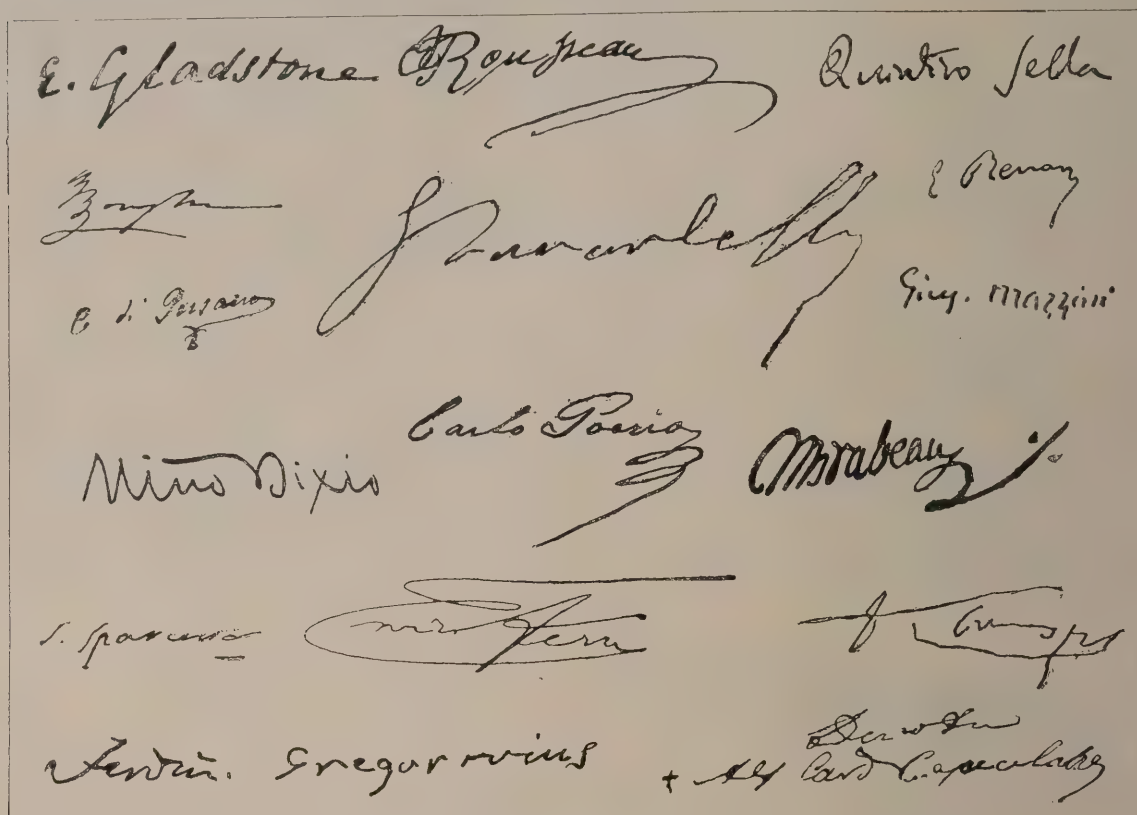 E. Gladstone Rousseau Quintino Sella
Bonghi
Zanardelli
E Renan
C di Persano
Gius. Mazzini
Carlo Poerio
Nino Bixio
Mirabeau
S. Spaventa
Enrico Ferri
F Crispi
Ferdin. Gregorovius
+ Alf Card Capecelatro